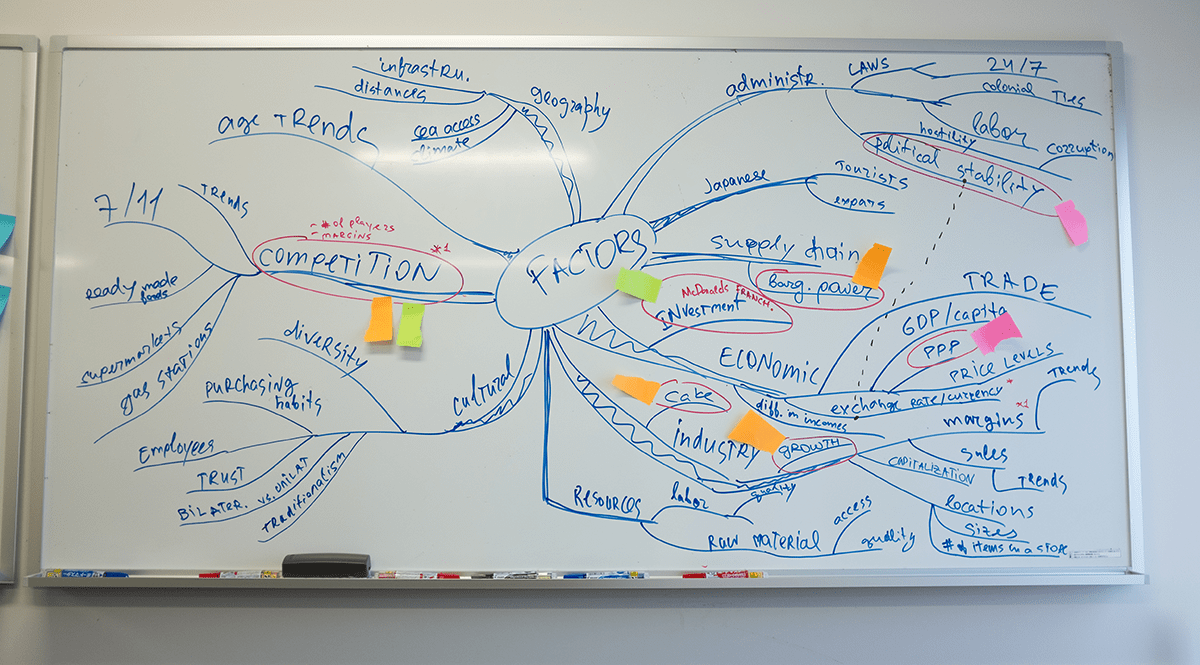 infrastru.
distances
geography
sea access
climate
age TRENDS
administr.
LAWS
24/7
colonial Ties
labor
hostility
corruption
political stability
Japanese
Tourists
expats
FACTORS
supply chain
Barg. power
McDonalds FRANCH.
INvestment
TRENDS
7/11
- # of players
- MARGINS
COMPETITION
*1
Ready made
foods
supermarkets
gas stations
TRADE
GDP/capita
PPP
PRICE LEVELS
ECONOMIC
exchange rate/currency *
diff. in incomes
TRENDS
margins *1
cake
industry
GROWTH
sales
CAPITALIZATION
TRENDS
locations
Sizes
# of items in a STORE
diversity
purchasing
habits
cultural
Employees
TRUST
BILATER. vs. UNILAT
traditionalism
Resources
labor
quality
Raw material
access
quality